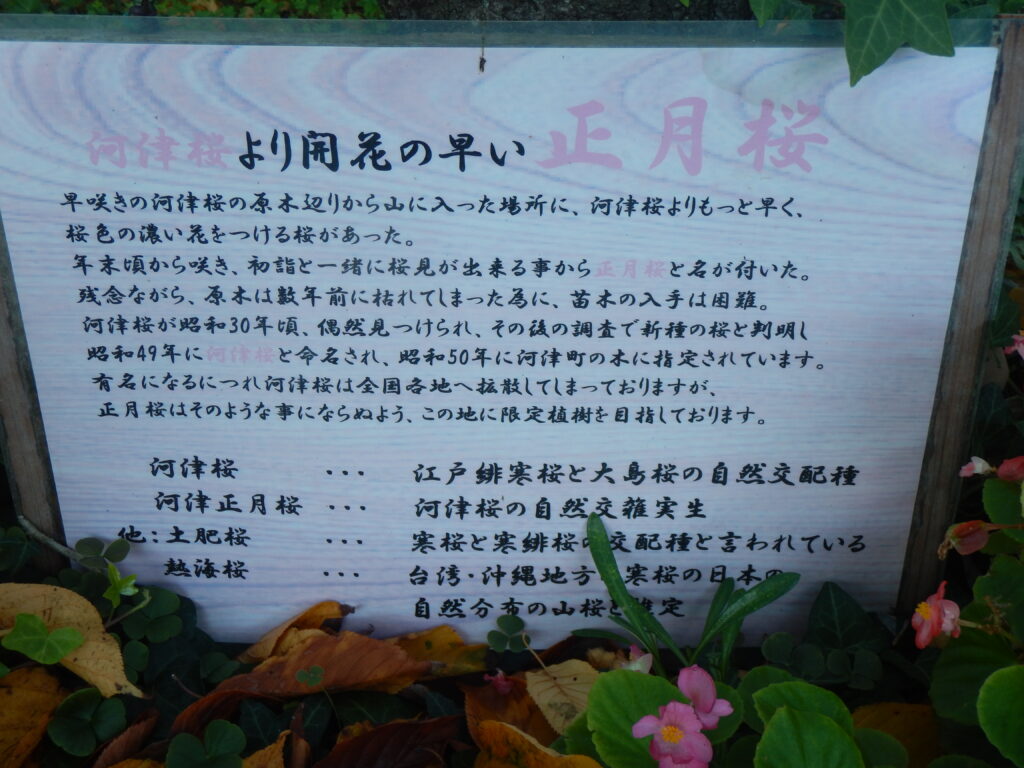 河津桜より開花の早い 正月桜
早咲きの河津桜の原木辺りから山に入った場所に、河津桜よりもっと早く、
桜色の濃い花をつける桜があった。
年末頃から咲き、初詣と一緒に桜見が出来る事から正月桜と名が付いた。
残念ながら、原木は数年前に枯れてしまった為に、苗木の入手は困難。
河津桜が昭和30年頃、偶然見つけられ、その後の調査で新種の桜と判明し
昭和49年に河津桜と命名され、昭和50年に河津町の木に指定されています。
有名になるにつれ河津桜は全国各地へ拡散してしまっておりますが、
正月桜はそのような事にならぬよう、この地に限定植樹を目指しております。
河津桜 ・・・ 江戸緋寒桜と大島桜の自然交配種
河津正月桜 ・・・ 河津桜の自然交雑実生
他：土肥桜 ・・・ 寒桜と寒緋桜の交配種と言われている
熱海桜 ・・・ 台湾・沖縄地方 寒桜の日本の
自然分布の山桜と推定